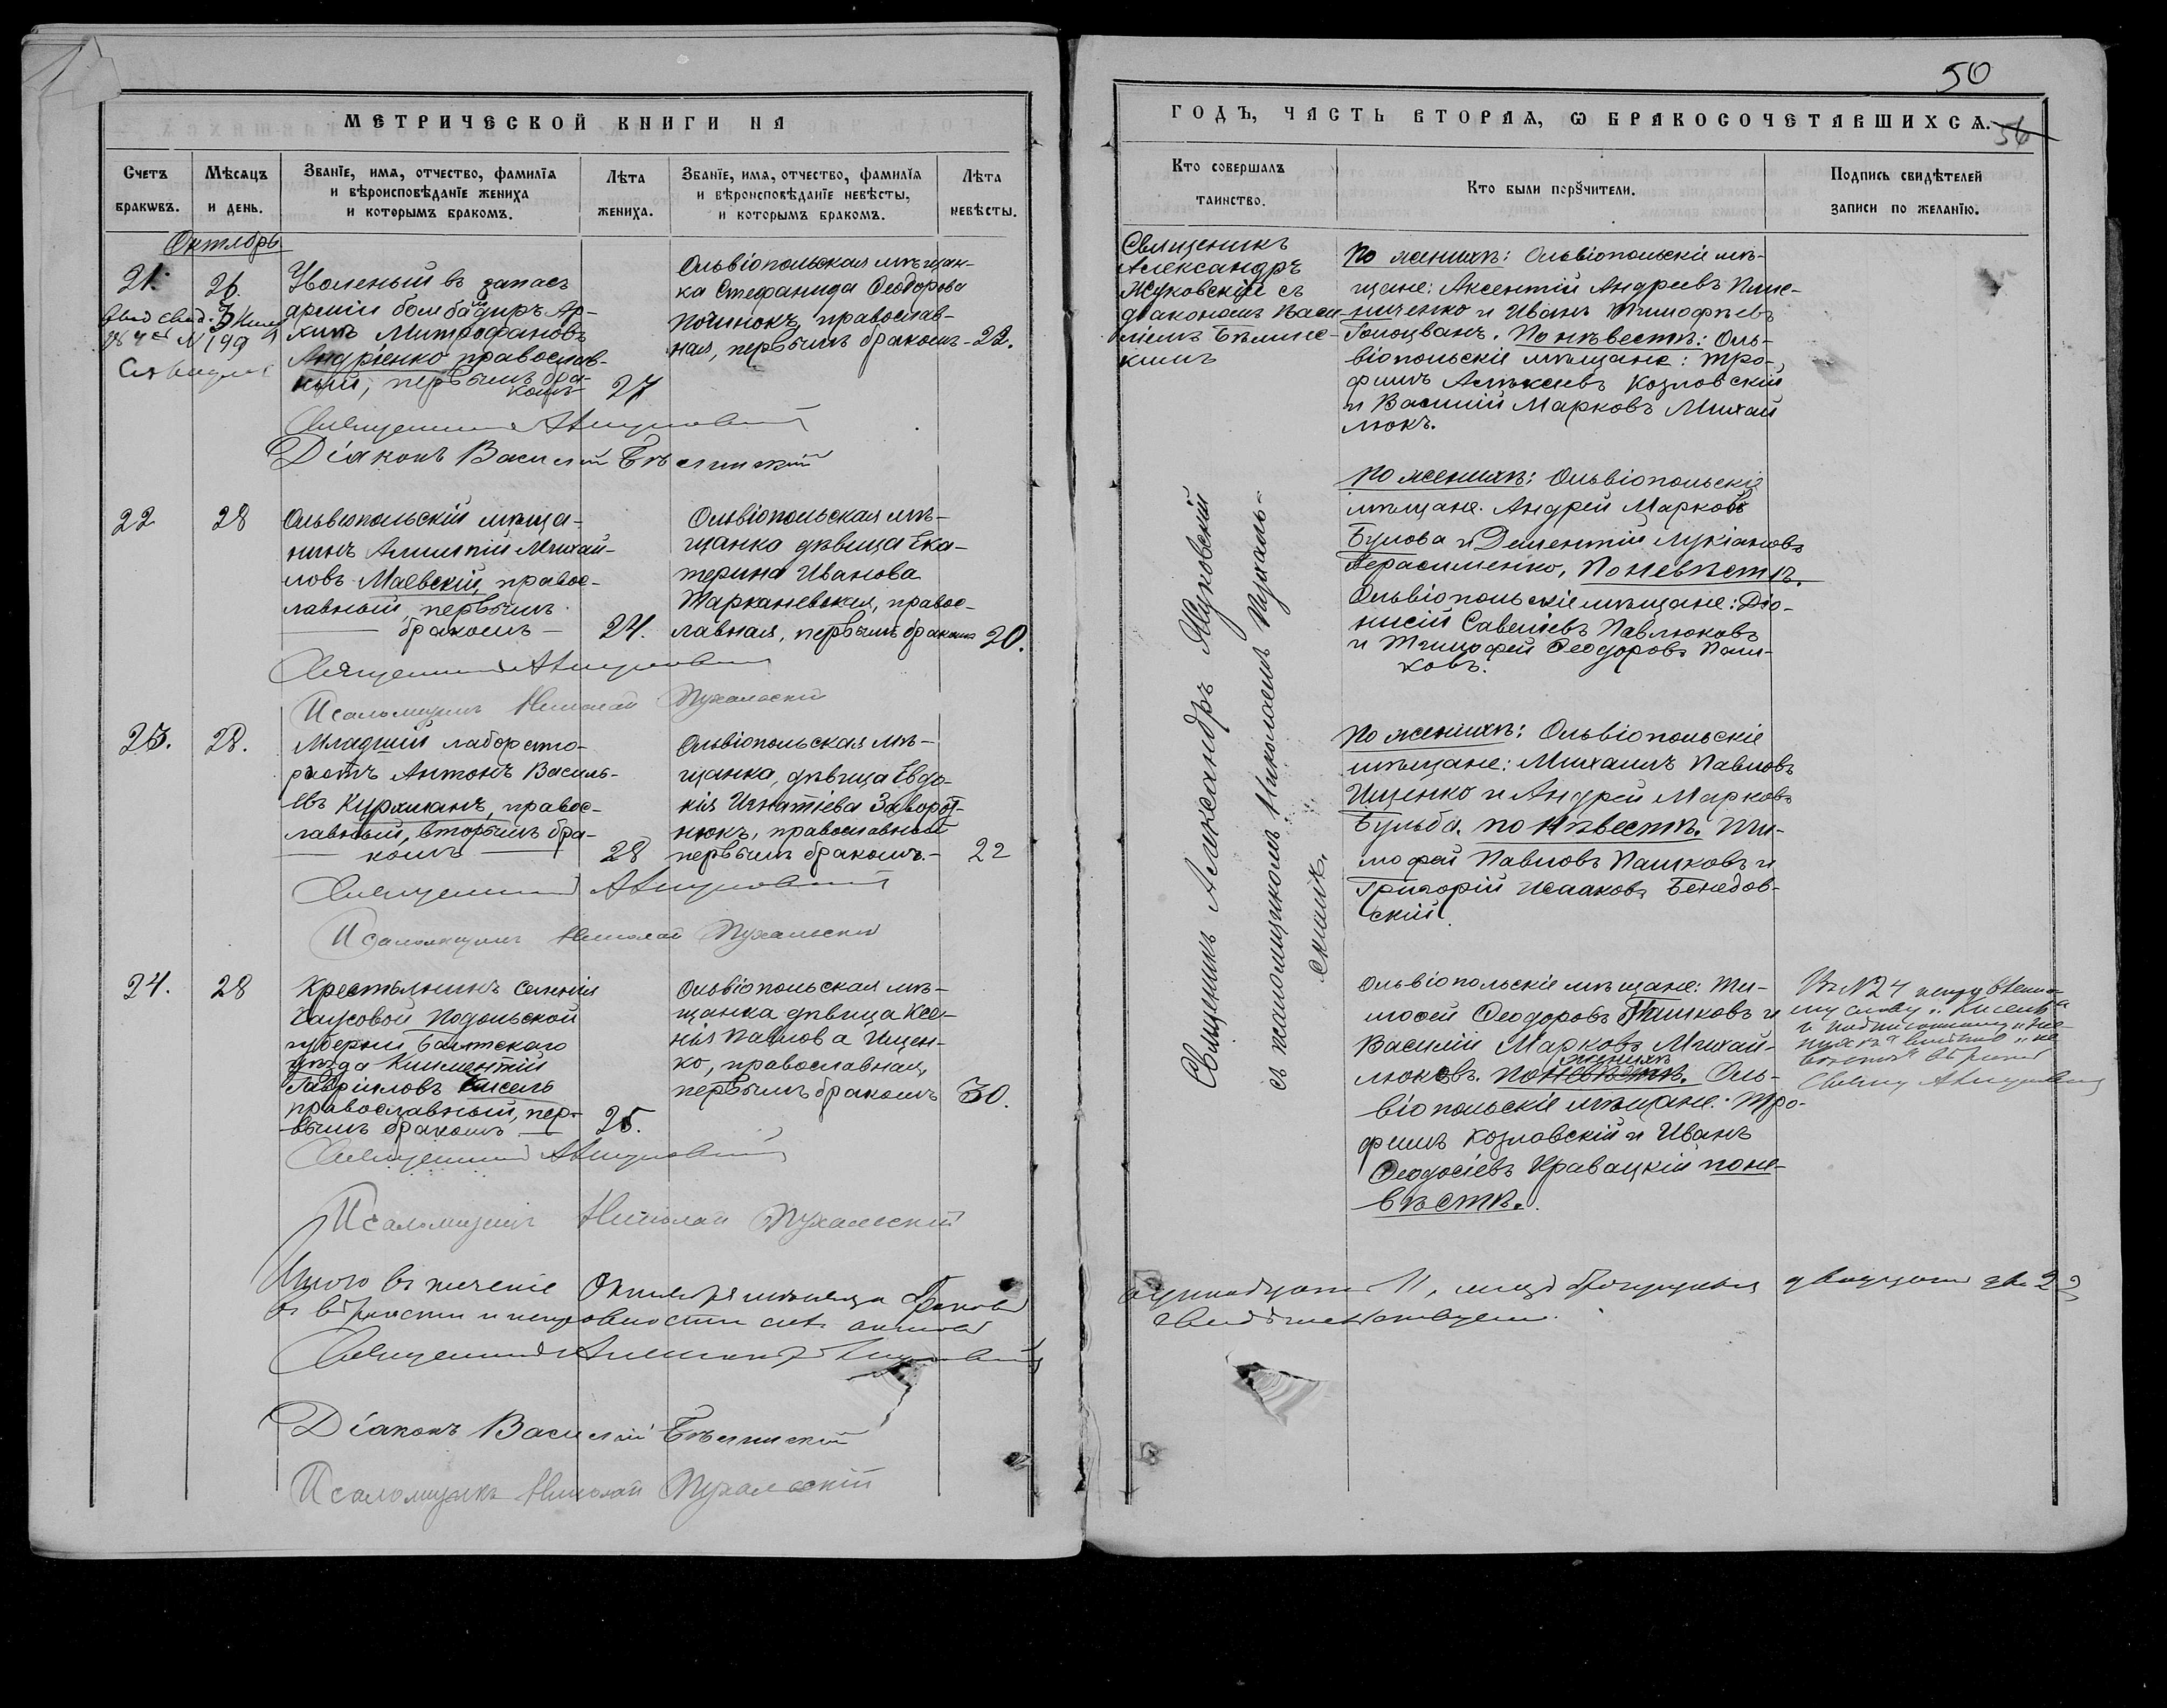 МЕТРИЧЕСКОЙ КНИГИ НА
Счетъ браковъ.
Мѣсяцъ и день.
Званіе, имя, отчество, фамилія и вѣроисповѣданіе жениха и которымъ бракомъ.
Лѣта жениха.
Званіе, имя, отчество, фамилія и вѣроисповѣданіе невѣсты, и которымъ бракомъ.
Лѣта невѣсты.
Октябрь
21.
26.
Уволеный въ запасъ
арміи бомбадиръ Ар-
хипъ Митрофановъ
Андріенко православ-
ный, первымъ бра-
комъ
27
Ольвіопольская мѣщан-
ка Стефанида Ѳеодорова
Починокъ, православ-
ная, первымъ бракомъ-
22.
Діаконъ Василій Бѣлинскій
22
28
Ольвіопольскій мѣща-
нинъ Алимпій Михай-
ловъ Маевскій, правос-
лавный, первымъ
бракомъ
24.
Ольвіопольская мѣ-
щанка дѣвица Ека-
терина Иванова
Таркановская, правос-
лавная, первымъ бракомъ
20.
Псаломщикъ Николай Пухальскій
23.
28.
Младшій лаборато-
ристъ Антонъ Василь-
евъ Курхманъ, правос-
лавный, вторымъ бра-
комъ
28
Ольвіопольская мѣ-
щанка, дѣвица Евдо-
кія Игнатіева Заворот-
нюкъ, православный
первымъ бракомъ.-
22
Псаломщикъ Николай Пухальскій
24.
28
Крестьянинъ селенія
Подольской
губерніи Балтскаго
уѣзда Климентій
Гавріиловъ Кисель
православный, пер-
вымъ бракомъ
25.
Ольвіопольская мѣ-
щанка дѣвица Ксе-
нія Павлова Ищен-
ко, православная,
первымъ бракомъ
30.
Псаломщикъ Николай Пухальскій
Итого въ теченіе Октября мѣсяца браковъ
Діаконъ Василій Бѣлинскій
Псаломщикъ Николай Пухальскій
50
56
ГОДЪ, ЧАСТЬ ВТОРАЯ, Ѡ БРАКОСОЧЕТАВШИХСЯ.
Кто совершалъ таинство.
Кто были порꙋчители.
Подпись свидѣтелей записи по желанію.
Священикъ
Александръ
Жуковскій съ
діакономъ Васи-
ліемъ Бѣлинс-
кимъ
По женихѣ: Ольвіопольскіе мѣ-
щане: Аксентій Андреевъ Пили-
пиченко и Иванъ Тимофѣевъ
Голоцванъ. По нѣвестѣ: Оль-
віопольскіе мѣщане: Тро-
фимъ Алѣксѣевъ Козловскій
и Василій Марковъ Михай
люкъ.
Священикъ Александръ Жуковскій
съ псаломщикомъ Николаемъ Пухаль-
скимъ.
По женихѣ: Ольвіопольскіе
мѣщане. Андрей Марковъ
и Дементій Лукіановъ
Герасименко, По невѣстѣ.
Ольвіопольскіе мѣщане: Діо-
нисій Савеліевъ Павлюковъ
и Тимофей Ѳеодоровъ Паш-
ковъ.
По женихѣ: Ольвіопольскіе
мѣщане: Михаилъ Павловъ
Ищенко и Андрей Марковъ
Бульба. По нѣвестѣ. Ти-
мофей Павловъ Пашковъ и
Григорій Исааковъ Бенедов-
скій.
Ольвіопольскіе мѣщане: Ти-
мофей Ѳеодоровъ Пашковъ и
Василій Марковъ Михай-
люковъ. По невѣстѣ. женихѣ Оль-
віопольскіе мѣщане: Тро-
фимъ Козловскій и Иванъ
Ѳеодосіевъ Кравацкій по не-
вѣстѣ.
одинадцать 11, лицъ двадцать два 22